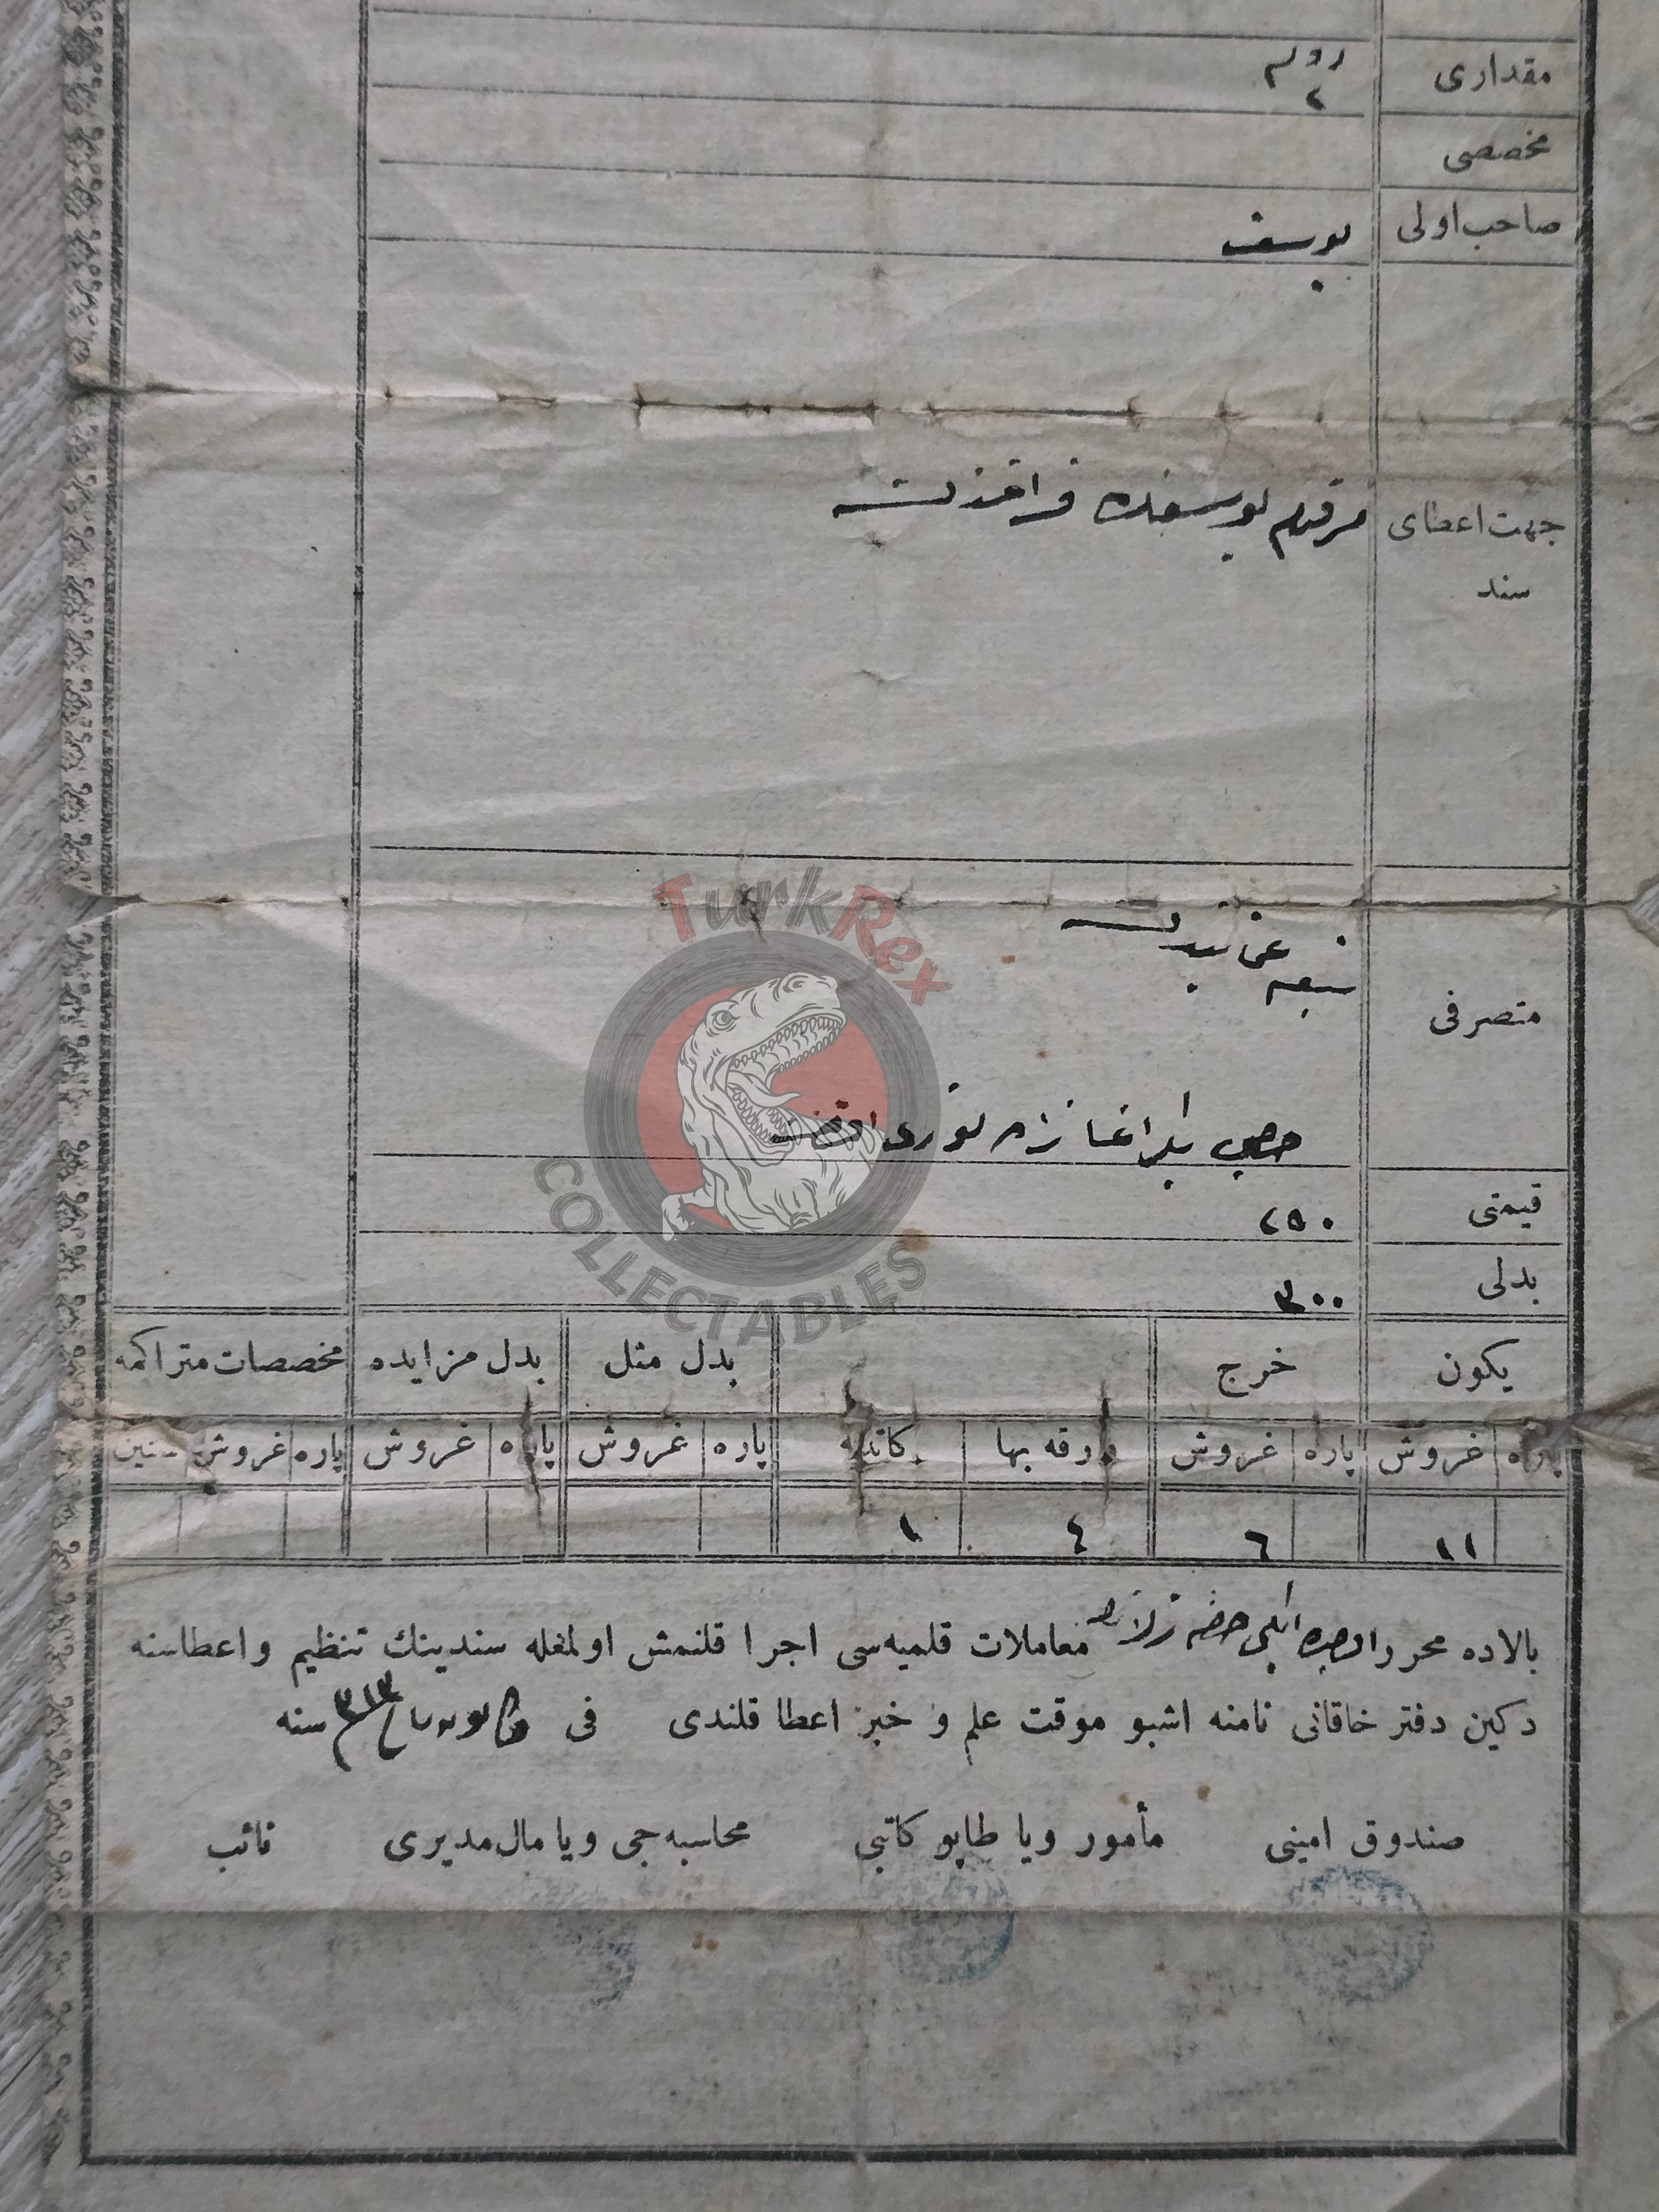 مقداری دونم ٢
مخصصی
صاحب اولی یوسف
جهت اعطای سند مرقوم یوسفدن فراغندن
متصرفی تبعه عثمانیه دن
بكر اغا زاده نوری افندی
قیمتی ٢٥٠
بدلی ٣٠٠
یكون خرج بدل مثل بدل مزایده مخصصات متراكمه
پاره غروش پاره غروش ورقه بها كاتبیه پاره غروش پاره غروش پاره غروش سنین
١١ ٦ ٤ ١
بالاده محرر معاملات قلمیه سی اجرا قلنمش اولمغله سندینك تنظیم واعطاسنه
دكین دفتر خاقانی نامنه اشبو موقت علم و خبر اعطا قلندی فی ٣١٣ سنه
صندوق امینی مأمور ویا طاپو كاتبی محاسبه جی ویا مال مدیری نائب
TurkRex
COLLECTABLES